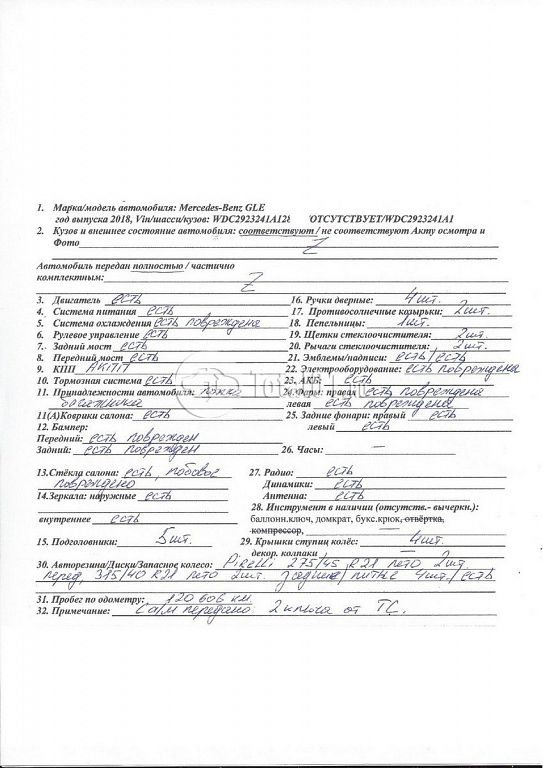 1. Марка/модель автомобиля: Mercedes-Benz GLE
год выпуска 2018, Vin/шасси/кузов: WDC2923241A12 /ОТСУТСТВУЕТ/WDC2923241A1
2. Кузов и внешнее состояние автомобиля: соответствуют / не соответствуют Акту осмотра и
Фото Z
Автомобиль передан полностью / частично
комплектным: Z
3. Двигатель есть
4. Система питания есть
5. Система охлаждения есть повреждена
6. Рулевое управление есть
7. Задний мост есть
8. Передний мост есть
9. КПП АКПП
10. Тормозная система есть
11. Принадлежности автомобиля:
багажника
11(А)Коврики салона: есть
12. Бампер:
Передний: есть поврежден
Задний: есть поврежден
13.Стёкла салона: есть, лобовое
повреждено
14.Зеркала: наружные есть
внутреннее есть
15. Подголовники: 5 шт.
16. Ручки дверные: 4 шт.
17. Противосолнечные козырьки: 2 шт.
18. Пепельницы: 1 шт.
19. Щетки стеклоочистителя: 2 шт.
20. Рычаги стеклоочистителя: 2 шт.
21. Эмблемы/надписи: есть/есть
22. Электрооборудование: есть повреждена
23. АКБ: есть
24.Фары: правая есть повреждена
левая есть повреждена
25. Задние фонари: правый есть
левый есть
26. Часы: —
27. Радио: есть
Динамики: есть
Антенна: есть
28. Инструмент в наличии (отсутств.- вычеркн.):
баллонн.ключ, домкрат, букс.крюк, отвёртка,
компрессор, —
29. Крышки ступиц колёс: 4 шт.
декор. колпаки —
30. Авторезина/Диски/Запасное колесо: Pirelli 275/45 R21 лето 2шт.
перед, 315/40 R21 лето 2шт. задние/литые 4шт./есть
31. Пробег по одометру: 120 606 км
32. Примечание: С а/м передано 2 ключа от ТС.